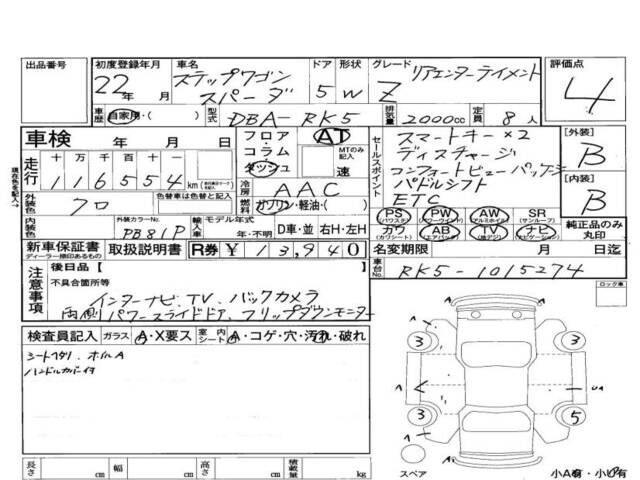 出品番号
初度登録年月 22年 月
車名 ステップワゴン スパーダ
ドア 5
形状 W
グレード Z リアエンターテイメント
評価点 4
車歴 自家用・( )
型式 DBA-RK5
排気量 2000cc
定員 8人
車検 年 月 日
フロア・コラム・ダッシュ
AT
MTのみ記入 速
セールスポイント
スマートキー×2
ディスチャージ
コンフォートビューパッケージ
パドルシフト
ETC
[外装] B
[内装] B
走行 十 万 千 百 十 一
116554 km
現在色を記入→
冷房 AAC
外装色 クロ
色替車は色替に○
燃料 ガソリン・軽油・( )
PS (パワステ) PW (パワーウインド) AW (アルミホイル) SR (サンルーフ)
カワ (カワシート) AB (エアバック) TV (地デジ) ナビ (ナビゲーション)
純正品のみ丸印
内装色
外装カラーNo. PB81P
輸入車 モデル年式 年・不明
D車・並 右H・左H
新車保証書 ディーラー捺印あるもの
取扱説明書
R券 ¥13,940
名変期限 月 日迄
車台No. RK5-1015274
注意事項
後日品【
不具合箇所等
インターナビ、TV、バックカメラ
両側パワースライドドア、フリップダウンモニター
ロック車
検査員記入 ガラス A・X要ス 室内シート A・コゲ・穴・汚れ・破れ
シートヘタリ、
3 3
A A
3 5
スペア
小A有・小U有
長さ cm 幅 cm 高さ cm 積載量 kg